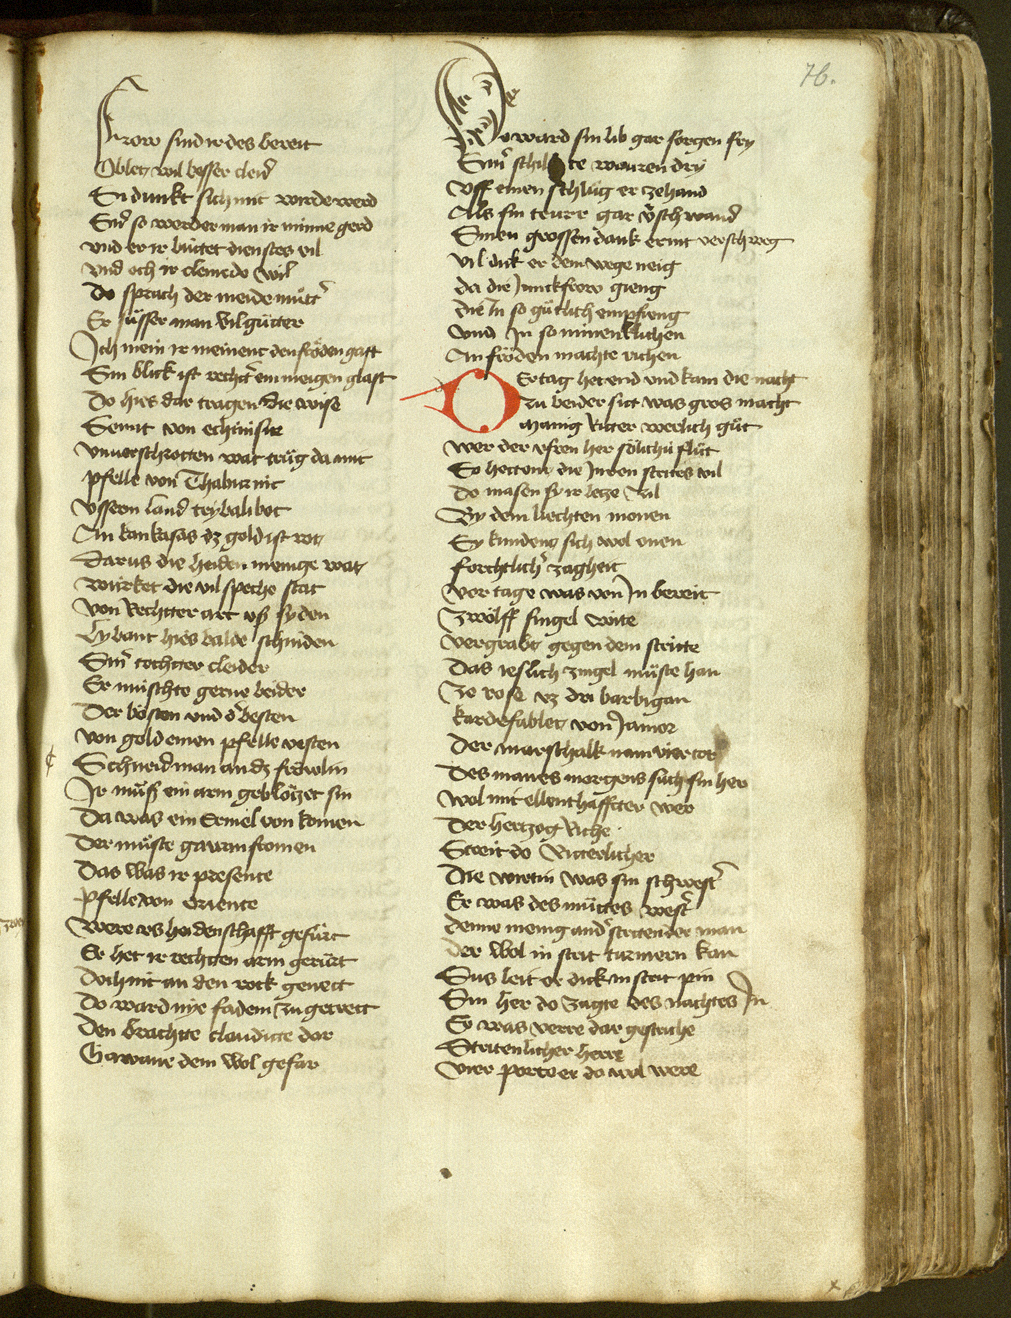 76.
Frow sind ir des bereit
Oblet wil besser cleid
Si dunkt sich mit wirde werd
Sid so werder man ir minne gerd
Vnd er ir bùttet dienstes vil
Vnd och ir cleinedo wil
Do sprach der meide mùtter
Er sùsser man vil gùtter
Ich mein ir meinent den fröden gast
Sin blick ist rechter ein meigen glast
Do hies dar tragen die wise
Semit von echtnisite
Vnuerschrotten wat trùg da mit
Pfelle von Thabirnit
Vsserm land trybalibot
An kankasas dz gold ist rot
Darus die heiden menige wat
Wùrket die vil speche stat
Von Rechtter art vß syden
Lybaut hies balde schniden
Siner tochtter cleider
Er muschte gerne beider
Der bösten vnd der besten
Von gold einen pfelle vesten
Schneid man an dz fröwlin
Ir mùß ein arm geblözet sin
Da was ein Ermel von komen
Der mùste gawan fromen
Das was ir presente
Pfelle von oriente
Verre vs heidenschafft gefùrt
Er het ir rechten arm gerùrt
Doch nit an den rock geneit
Do ward nye fadem zu gerreit
Den brachtte claudite dar
Gawane dem wol gefar
Do ward sin lib gar sorgen fry
Siner schilte wauren dry
Vff einen schlùg er zehand
Als sin trurr gar verschwand
Sinen grossen dank er nit versch weg
Vil dik er dem wege neig
da die Junckfrow gieng
die In so gùtlich empfieng
Vnd In so minenklichen
An fröden machte richen
Der tag het end vnd kam die nacht
zu beider sitt was gros macht
Manig Ritter werlich gùt
Wer der vsren her sölichù flùt
So hettent die Inren strites vil
Do masen sy ir letze zil
By dem liechten monen
Sy kundent sich wol vnen
forchtlicher zagheit
Vor tage was von In bereit
Zwölff singel wite
Vergrabt gegen dem stritte
Das ieslich zingel mùste han
Ze rose vz dri barbigan
Kardefablet von Jamor
Der marschalk nam vier tor
Des manes morgens sùch sin her
Wol mit ellenthafftter wer
Der hertzog Riche
Streit do Ritterlicher
Die wirtin was sin schwester
Er was des mùttes vester
denne menig ander stritender man
der wol in strit turniern kan
Sus leit er dick in strit pin
Sin her do zogte des nachtes In
Er was verre dar gestriche
Stritenlicher herre
Vier porte er do wol were